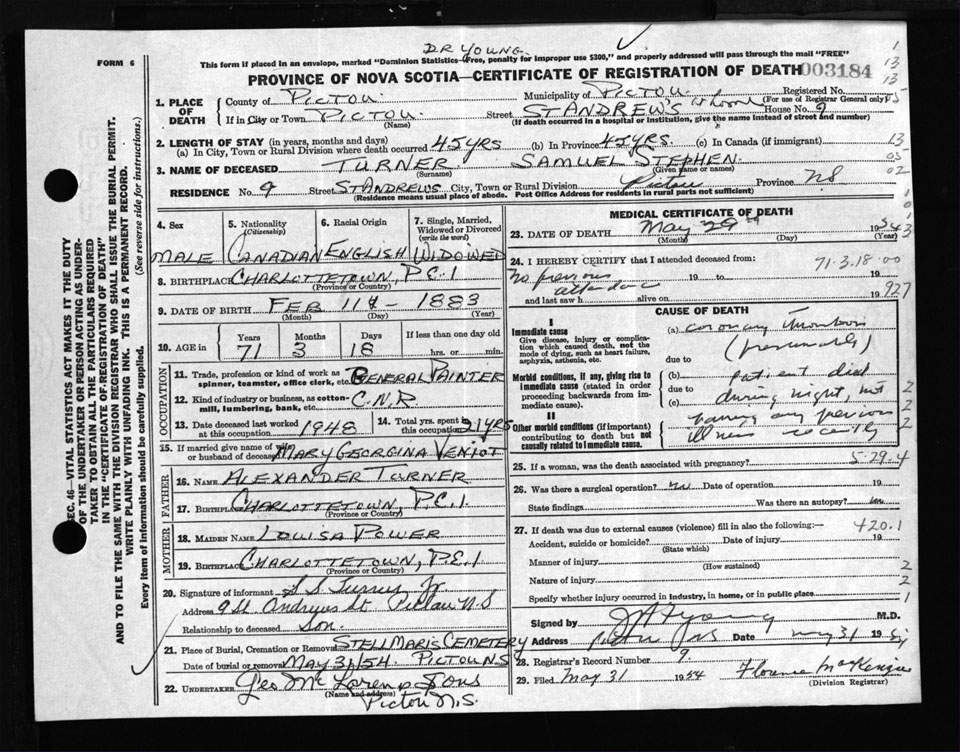 DR YOUNG.
FORM 6
This form if placed in an envelope, marked "Dominion Statistics—Free, penalty for improper use $300," and properly addressed will pass through the mail "FREE"
PROVINCE OF NOVA SCOTIA—CERTIFICATE OF REGISTRATION OF DEATH 003184
SEC. 46—VITAL STATISTICS ACT MAKES IT THE DUTY OF THE UNDERTAKER OR PERSON ACTING AS UNDERTAKER TO OBTAIN ALL THE PARTICULARS REQUIRED IN THE "CERTIFICATE OF REGISTRATION OF DEATH"
AND TO FILE THE SAME WITH THE DIVISION REGISTRAR WHO SHALL ISSUE THE BURIAL PERMIT.
WRITE PLAINLY WITH UNFADING INK. THIS IS A PERMANENT RECORD.
Every item of information should be carefully supplied. (See reverse side for instructions.)
1. PLACE OF DEATH
County of PICTOU. Municipality of PICTOU. Registered No.
(For use of Registrar General only)
If in City or Town PICTOU. Street ST ANDREW'S House No. 9
(Name) (If death occurred in a hospital or institution, give the name instead of street and number)
2. LENGTH OF STAY (in years, months and days)
(a) In City, Town or Rural Division where death occurred 45 YRS (b) In Province 45 YRS. (c) In Canada (if immigrant)
3. NAME OF DECEASED TURNER SAMUEL STEPHEN.
(Surname) (Given name or names)
RESIDENCE No. 9 Street ST ANDREWS City, Town or Rural Division Pictou Province N.S
(Residence means usual place of abode. Post Office Address for residents in rural parts not sufficient)
4. Sex
5. Nationality (Citizenship)
6. Racial Origin
7. Single, Married, Widowed or Divorced (write the word)
MALE CANADIAN ENGLISH WIDOWED
8. BIRTHPLACE CHARLOTTETOWN, P.E.I
(Province or Country)
9. DATE OF BIRTH FEB 11th - 1883
(Month) (Day) (Year)
10. AGE in Years Months Days If less than one day old
71 3 18 hrs. or min.
OCCUPATION
11. Trade, profession or kind of work as spinner, teamster, office clerk, etc. GENERAL PAINTER
12. Kind of industry or business, as cotton-mill, lumbering, bank, etc. C.N.R
13. Date deceased last worked at this occupation 1948
14. Total yrs. spent in this occupation 21 YRS
15. If married give name of wife or husband of deceased MARY GEORGINA VENIOT
FATHER
16. NAME ALEXANDER TURNER
17. BIRTHPLACE CHARLOTTETOWN, P.E.I.
(Province or Country)
MOTHER
18. MAIDEN NAME LOUISA POWER
19. BIRTHPLACE CHARLOTTETOWN, P.E.I
(Province or Country)
20. Signature of informant S S Turner Jr
Address 9 St. Andrews St. Pictou N.S
Relationship to deceased Son.
21. Place of Burial, Cremation or Removal STELL MARIS CEMETERY
Date of burial or removal MAY 31/54. PICTOU N.S
22. UNDERTAKER Geo McLaren & Sons
(Name and address)
Pictou N.S.
MEDICAL CERTIFICATE OF DEATH
23. DATE OF DEATH May 29th 1954
(Month) (Day) (Year)
24. I HEREBY CERTIFY that I attended deceased from: 71.3.18.00
No previous 19 to 19
attendance
and last saw h alive on 19 927
CAUSE OF DEATH
I
Immediate cause
Give disease, injury or complication which caused death, not the mode of dying, such as heart failure, asphyxia, asthenia, etc.
(a) coronary Thrombosis
(presumably)
due to
Morbid conditions, if any, giving rise to immediate cause (stated in order proceeding backwards from immediate cause).
(b) patient died
due to during night, not
(c) having any previous
illness recently
II
Other morbid conditions (if important) contributing to death but not causally related to immediate cause.
25. If a woman, was the death associated with pregnancy? 5.29.4
26. Was there a surgical operation? no Date of operation 19
State findings Was there an autopsy? no
27. If death was due to external causes (violence) fill in also the following:— 420.1
Accident, suicide or homicide? Date of injury 19
(State which)
Manner of injury
(How sustained)
Nature of injury
Specify whether injury occurred in industry, in home, or in public place
Signed by J A Young M.D.
Address Pictou NS Date May 31 1954
28. Registrar's Record Number 9
29. Filed May 31 1954 Florence MacKenzie
(Division Registrar)